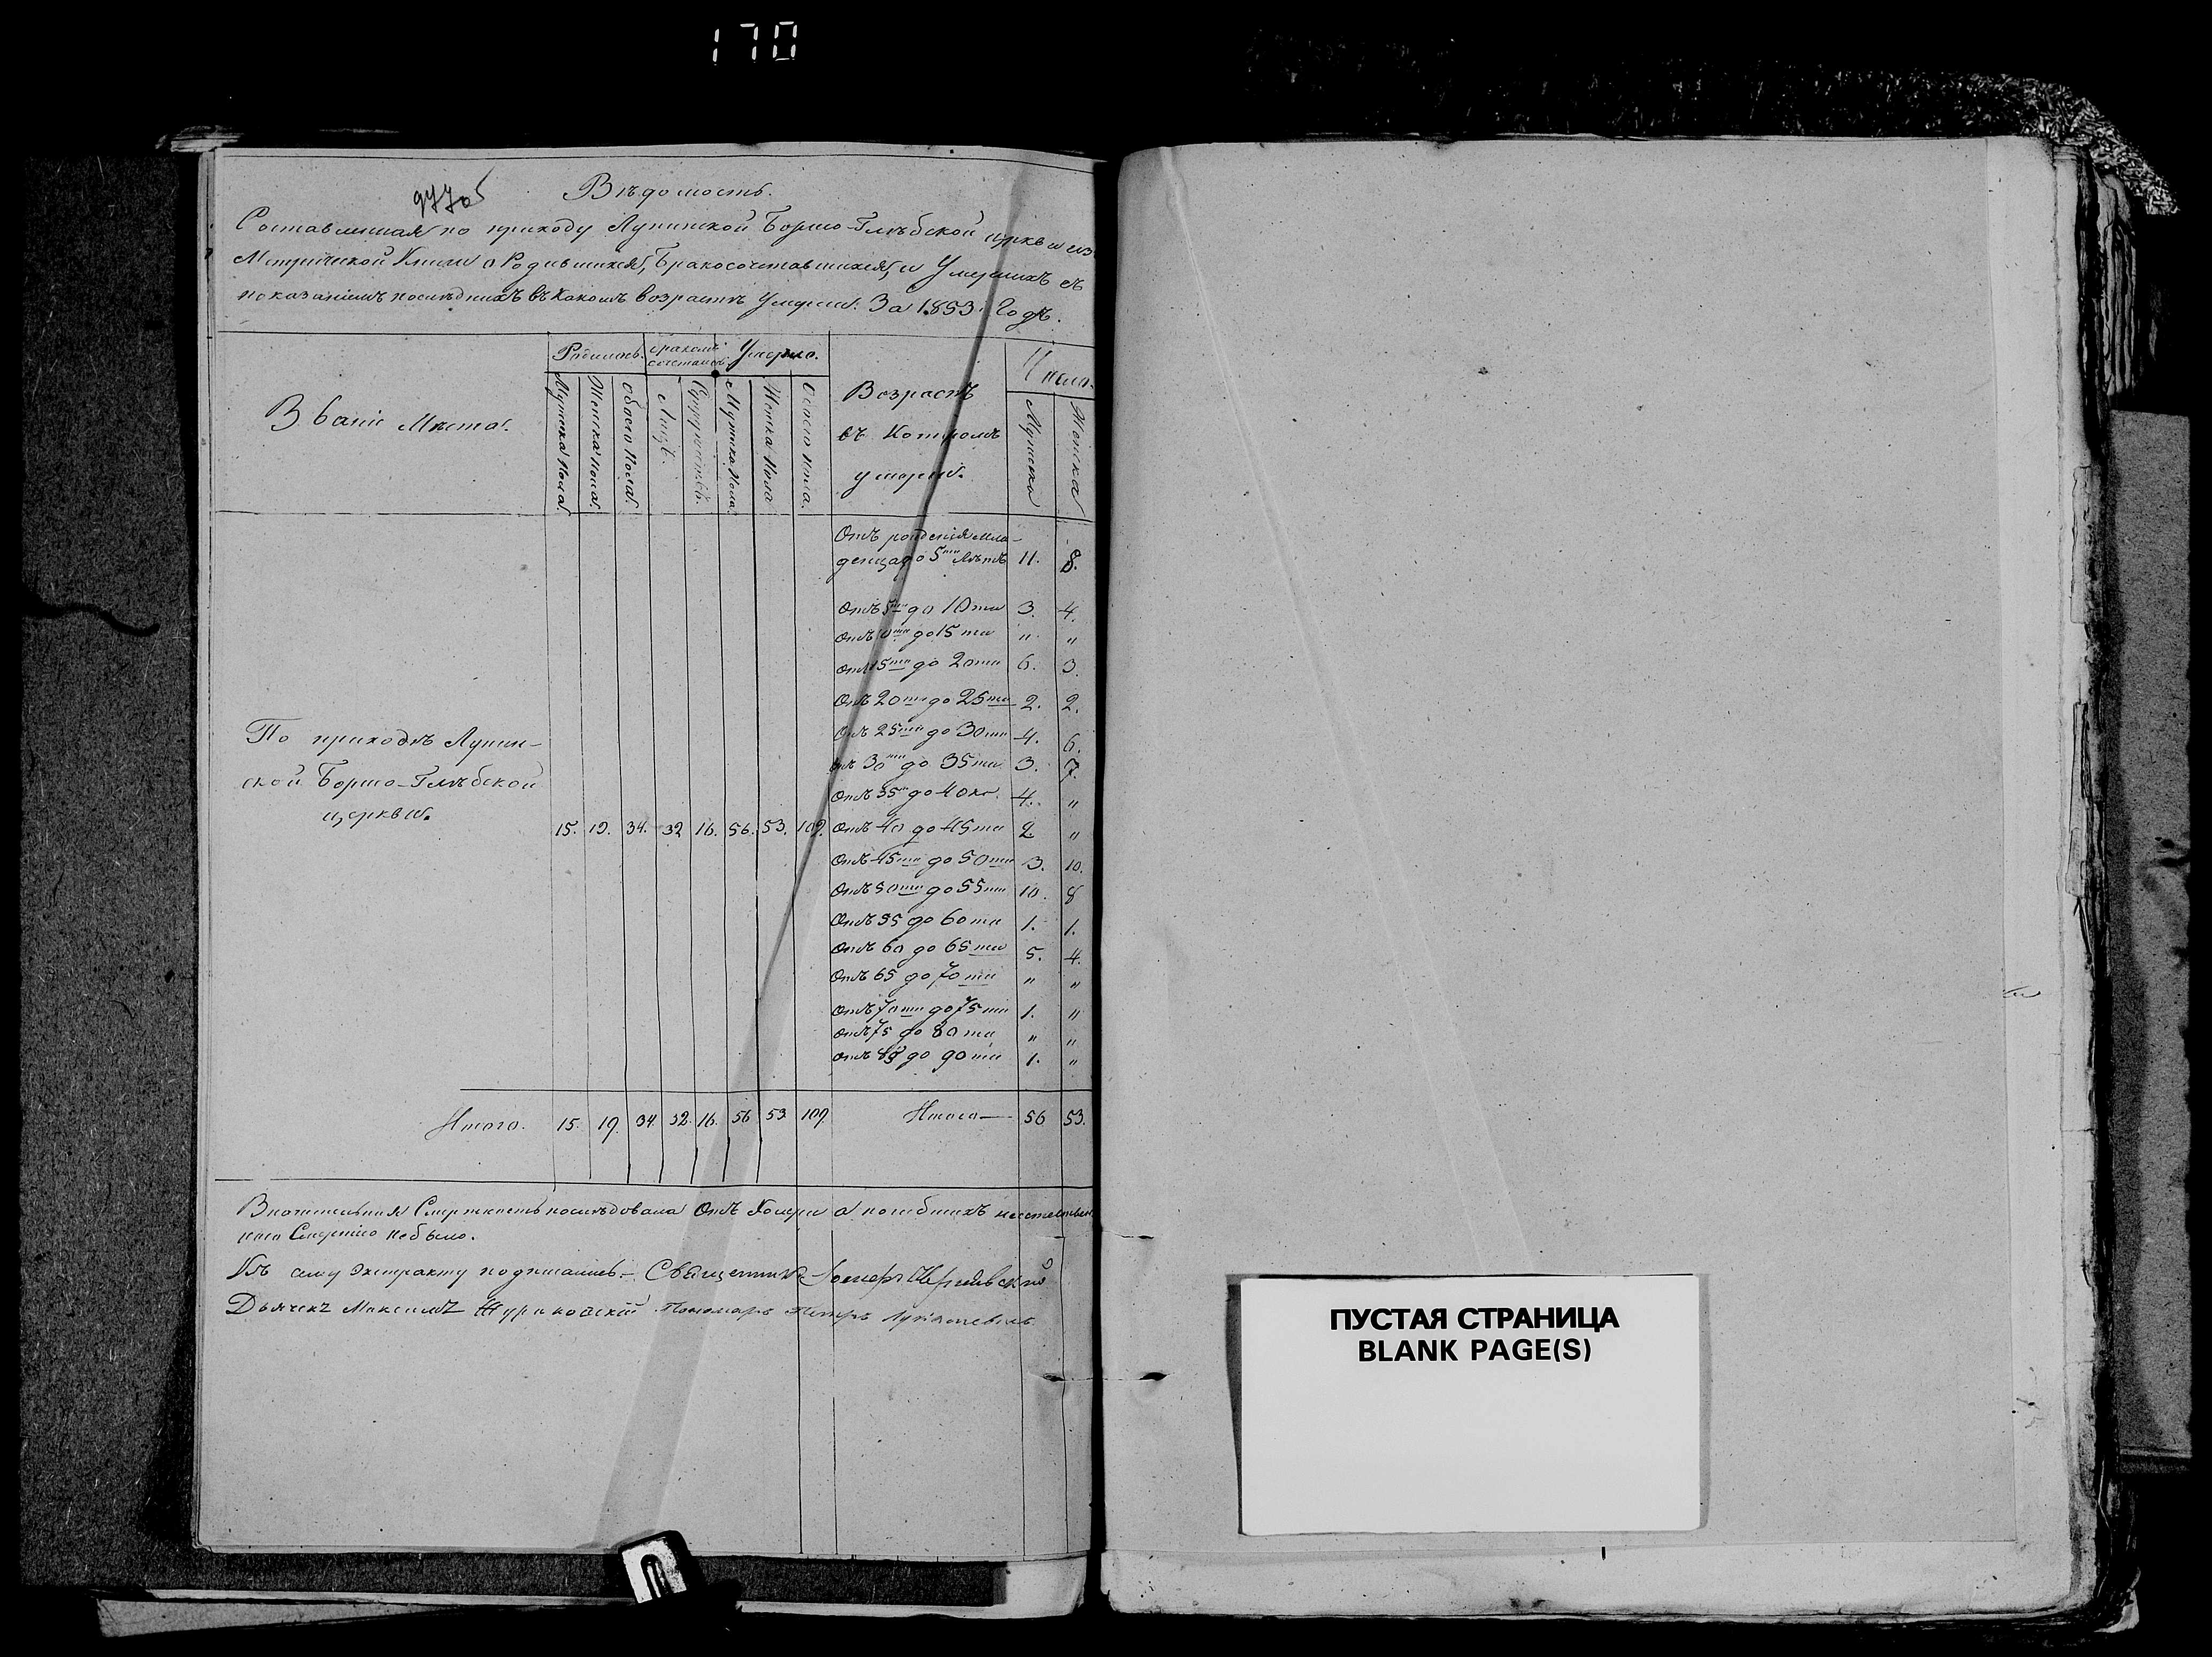 170
977об
Вѣдомость.
Составленная по приходу Лунинской Борисо-Глѣбской церкви из
Метрической Книги о Родившихся, Бракосочетавшихся, и Умершихъ съ
показаніемъ послѣднихъ въ какомъ возрастѣ умерли. За 1853. Годъ.
Званіе Мѣста.
Родилось.
бракомъ сочеталось
Умерло.
Мужска пола.
Женска пола.
Обоего пола.
Лицъ.
Супружествъ.
Мужска пола.
Женска пола
Обоего пола.
Возрастъ
въ котромъ
умерли.
Число.
Мужска
Женска
Отъ рожденія мла-
денца до 5ти лѣтъ 11. 8.
Отъ 5ти до 10ти 3. 4.
Отъ 10ти до 15ти " "
Отъ 15ти до 20ти 6. 3.
Отъ 20ти до 25ти 2. 2.
Отъ 25ти до 30ти 4. 6.
Отъ 30ти до 35ти 3. 7.
Отъ 35ти до 40ка. 4. "
По приходѣ Лунин-
ской Борисо-Глѣбской
церкви.
15. 19. 34. 32 16. 56. 53. 109.
Отъ 40 до 45ти 2. "
Отъ 45ти до 50ти 3. 10.
Отъ 50ти до 55ти 10. 8
Отъ 55 до 60ти 1. 1.
Отъ 60 до 65ти 5. 4.
Отъ 65 до 70ти " "
Отъ 70ти до 75ти 1. "
Отъ 75 до 80ти " "
Отъ 85 до 90ти 1. "
Итого. 15. 19. 34. 32. 16. 56 53 109. Итого— 56 53.
Смертность послѣдовала отъ Холеры а погибшихъ неестествен
ною Смертію небыло.
Къ сему Экстракту подписались. Священникъ
Дьячекъ Максимъ Жураковскій Пономарь Петръ
ПУСТАЯ СТРАНИЦА
BLANK PAGE(S)